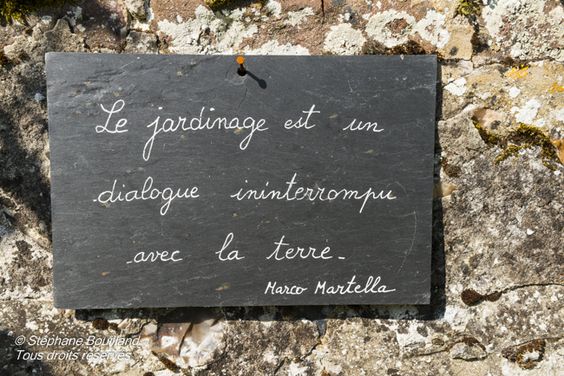 Le jardinage est un
dialogue ininterrompu
avec la terre_
Marco Martella
© Stéphane Bouilland
Tous droits réservés